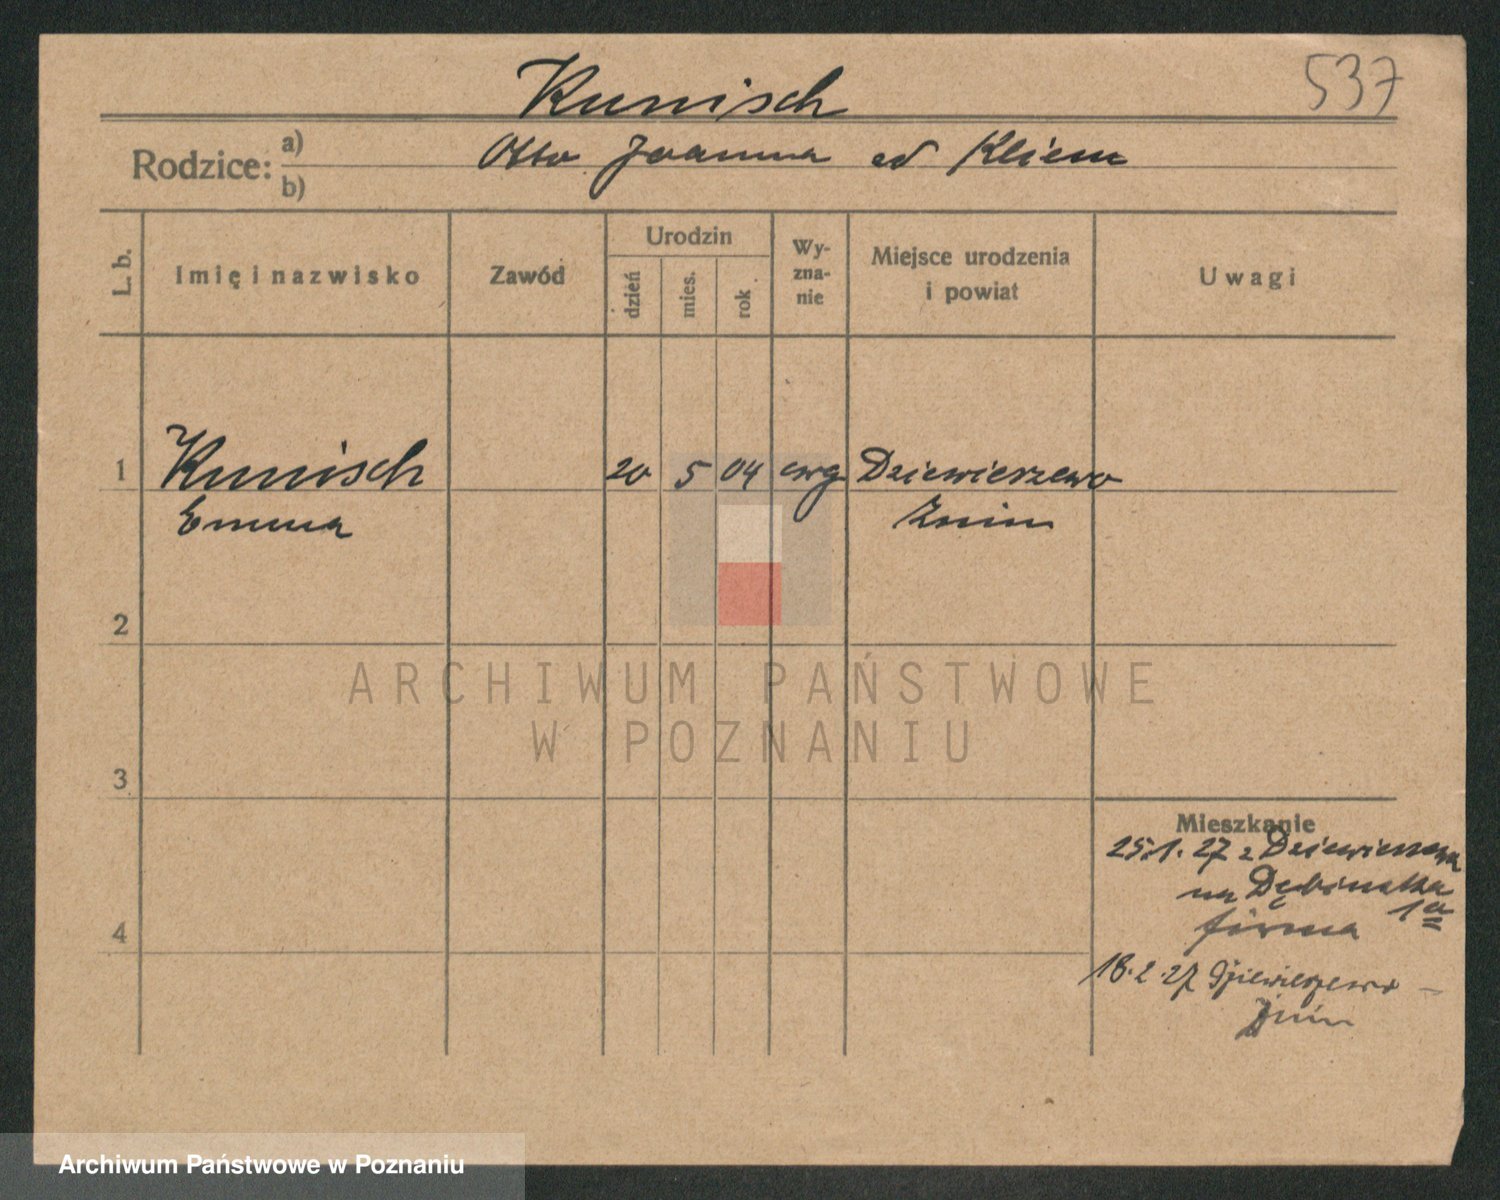 537
Kunisch
Rodzice: a) b)
Otto Joanna
L. b.
Imię i nazwisko
Zawód
Urodzin
dzień
mies.
rok
Wy-
zna-
nie
Miejsce urodzenia
i powiat
Uwagi
1
Kunisch
20 5 04 ewg Dziewierzewo
Emma
Żnin
2
ARCHIWUM PAŃSTWOWE
W POZNANIU
3
Mieszkanie
25.1.27 z Dziewierzewa
na
1a
firma
4
18.2.27 Dziewierzewo –
Żnin
Archiwum Państwowe w Poznaniu